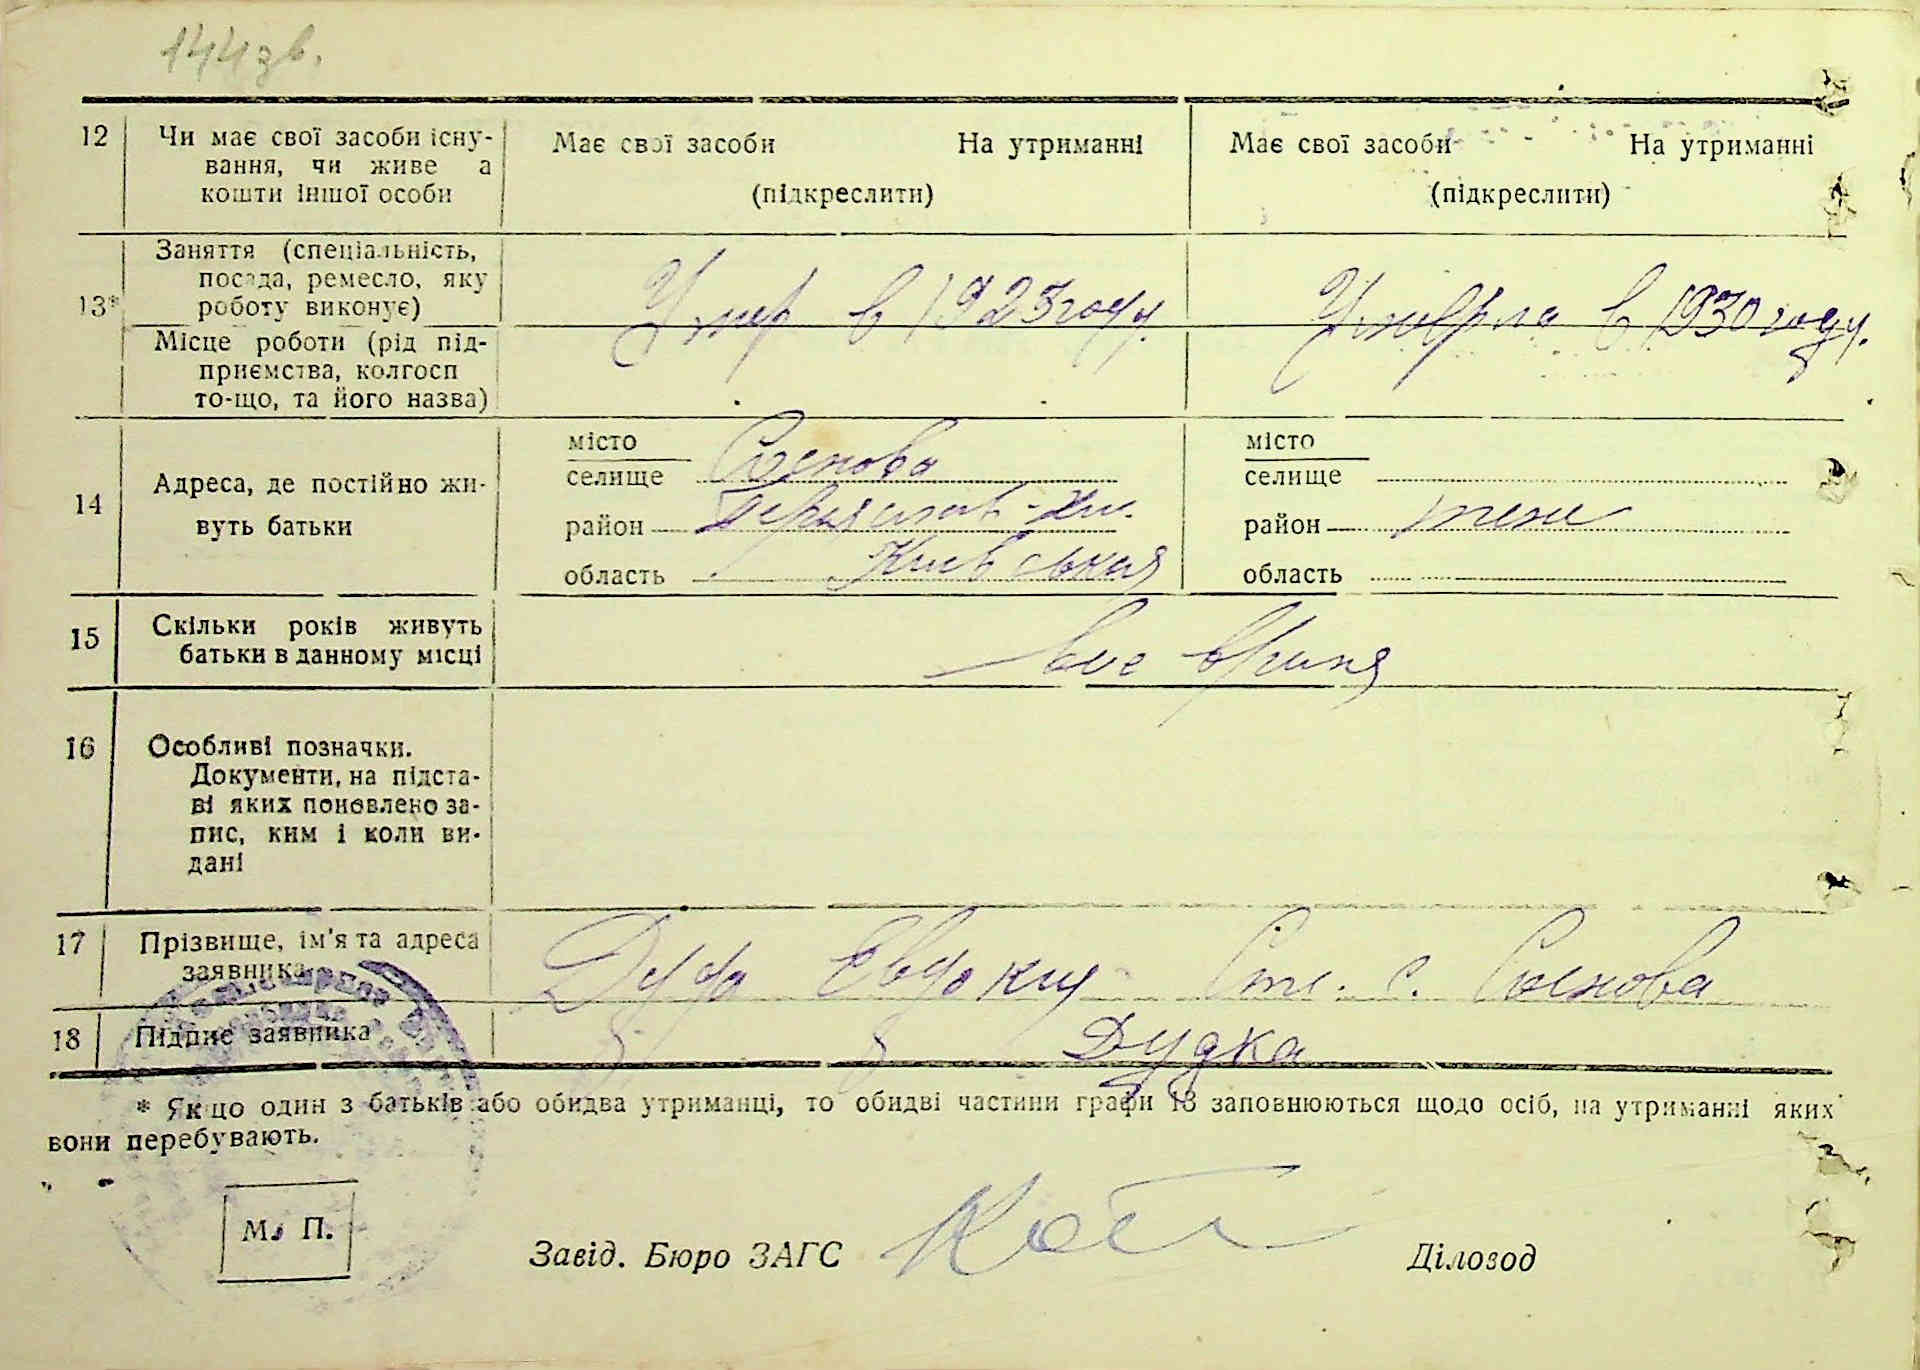 144зв.
12 Чи має свої засоби існу- Має свої засоби На утриманні Має свої засоби На утриманні
вання, чи живе а
кошти іншої особи (підкреслити) (підкреслити)
Заняття (спеціальність,
посада, ремесло, яку
13* роботу виконує) Умер в 1923 году. Умерла в 1930 году.
Місце роботи (рід під-
приємства, колгосп
то-що, та його назва)
місто місто
селище Соснова селище
14 Адреса, де постійно жи-
вуть батьки район Переяслов-Хм. район тоже
область Киевськая область
15 Скільки років живуть
батьки в данному місці все время
16 Особливі позначки.
Документи, на підста-
ві яких поновлено за-
пис, ким і коли ви-
дані
17 Прізвище, ім'я та адреса
заявника с. Соснова
18 Підпис заявника Дудка
* Якщо один з батьків або обидва утриманці, то обидві частини графи 13 заповнюються щодо осіб, на утриманні яких
вони перебувають.
М. П.
Завід. Бюро ЗАГС Діловод